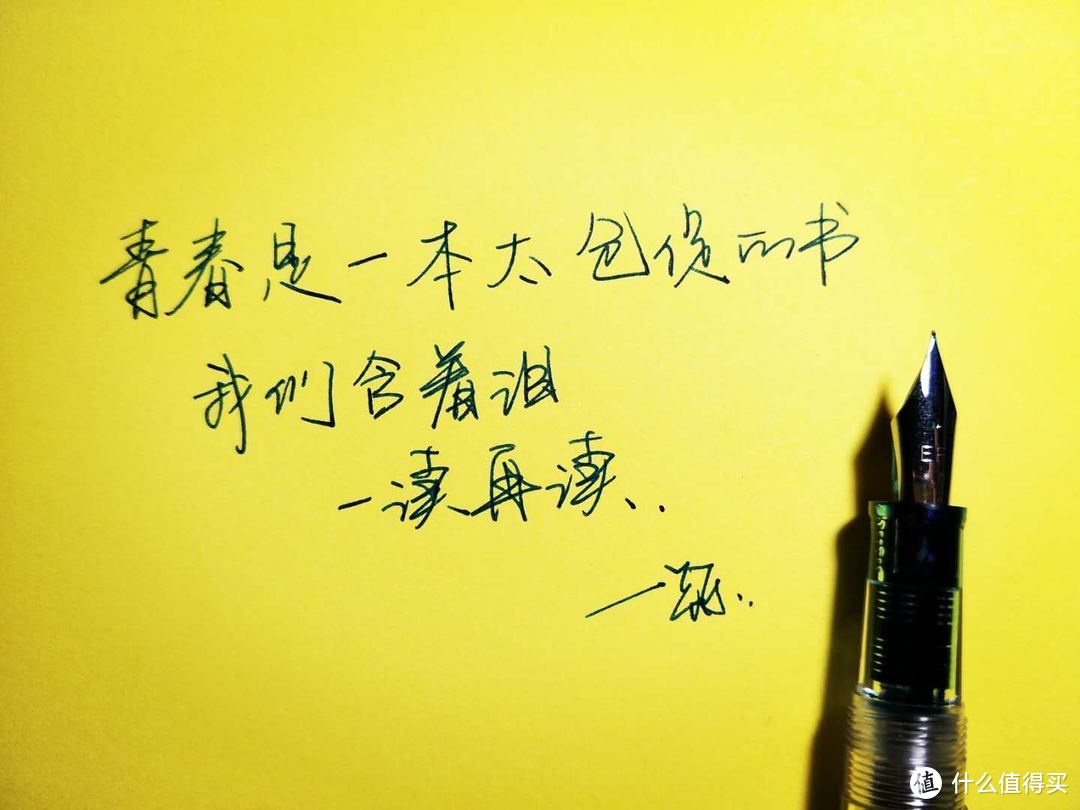 青春是一本太仓促的书
我们含着泪
一读再读、..
值 什么值得买